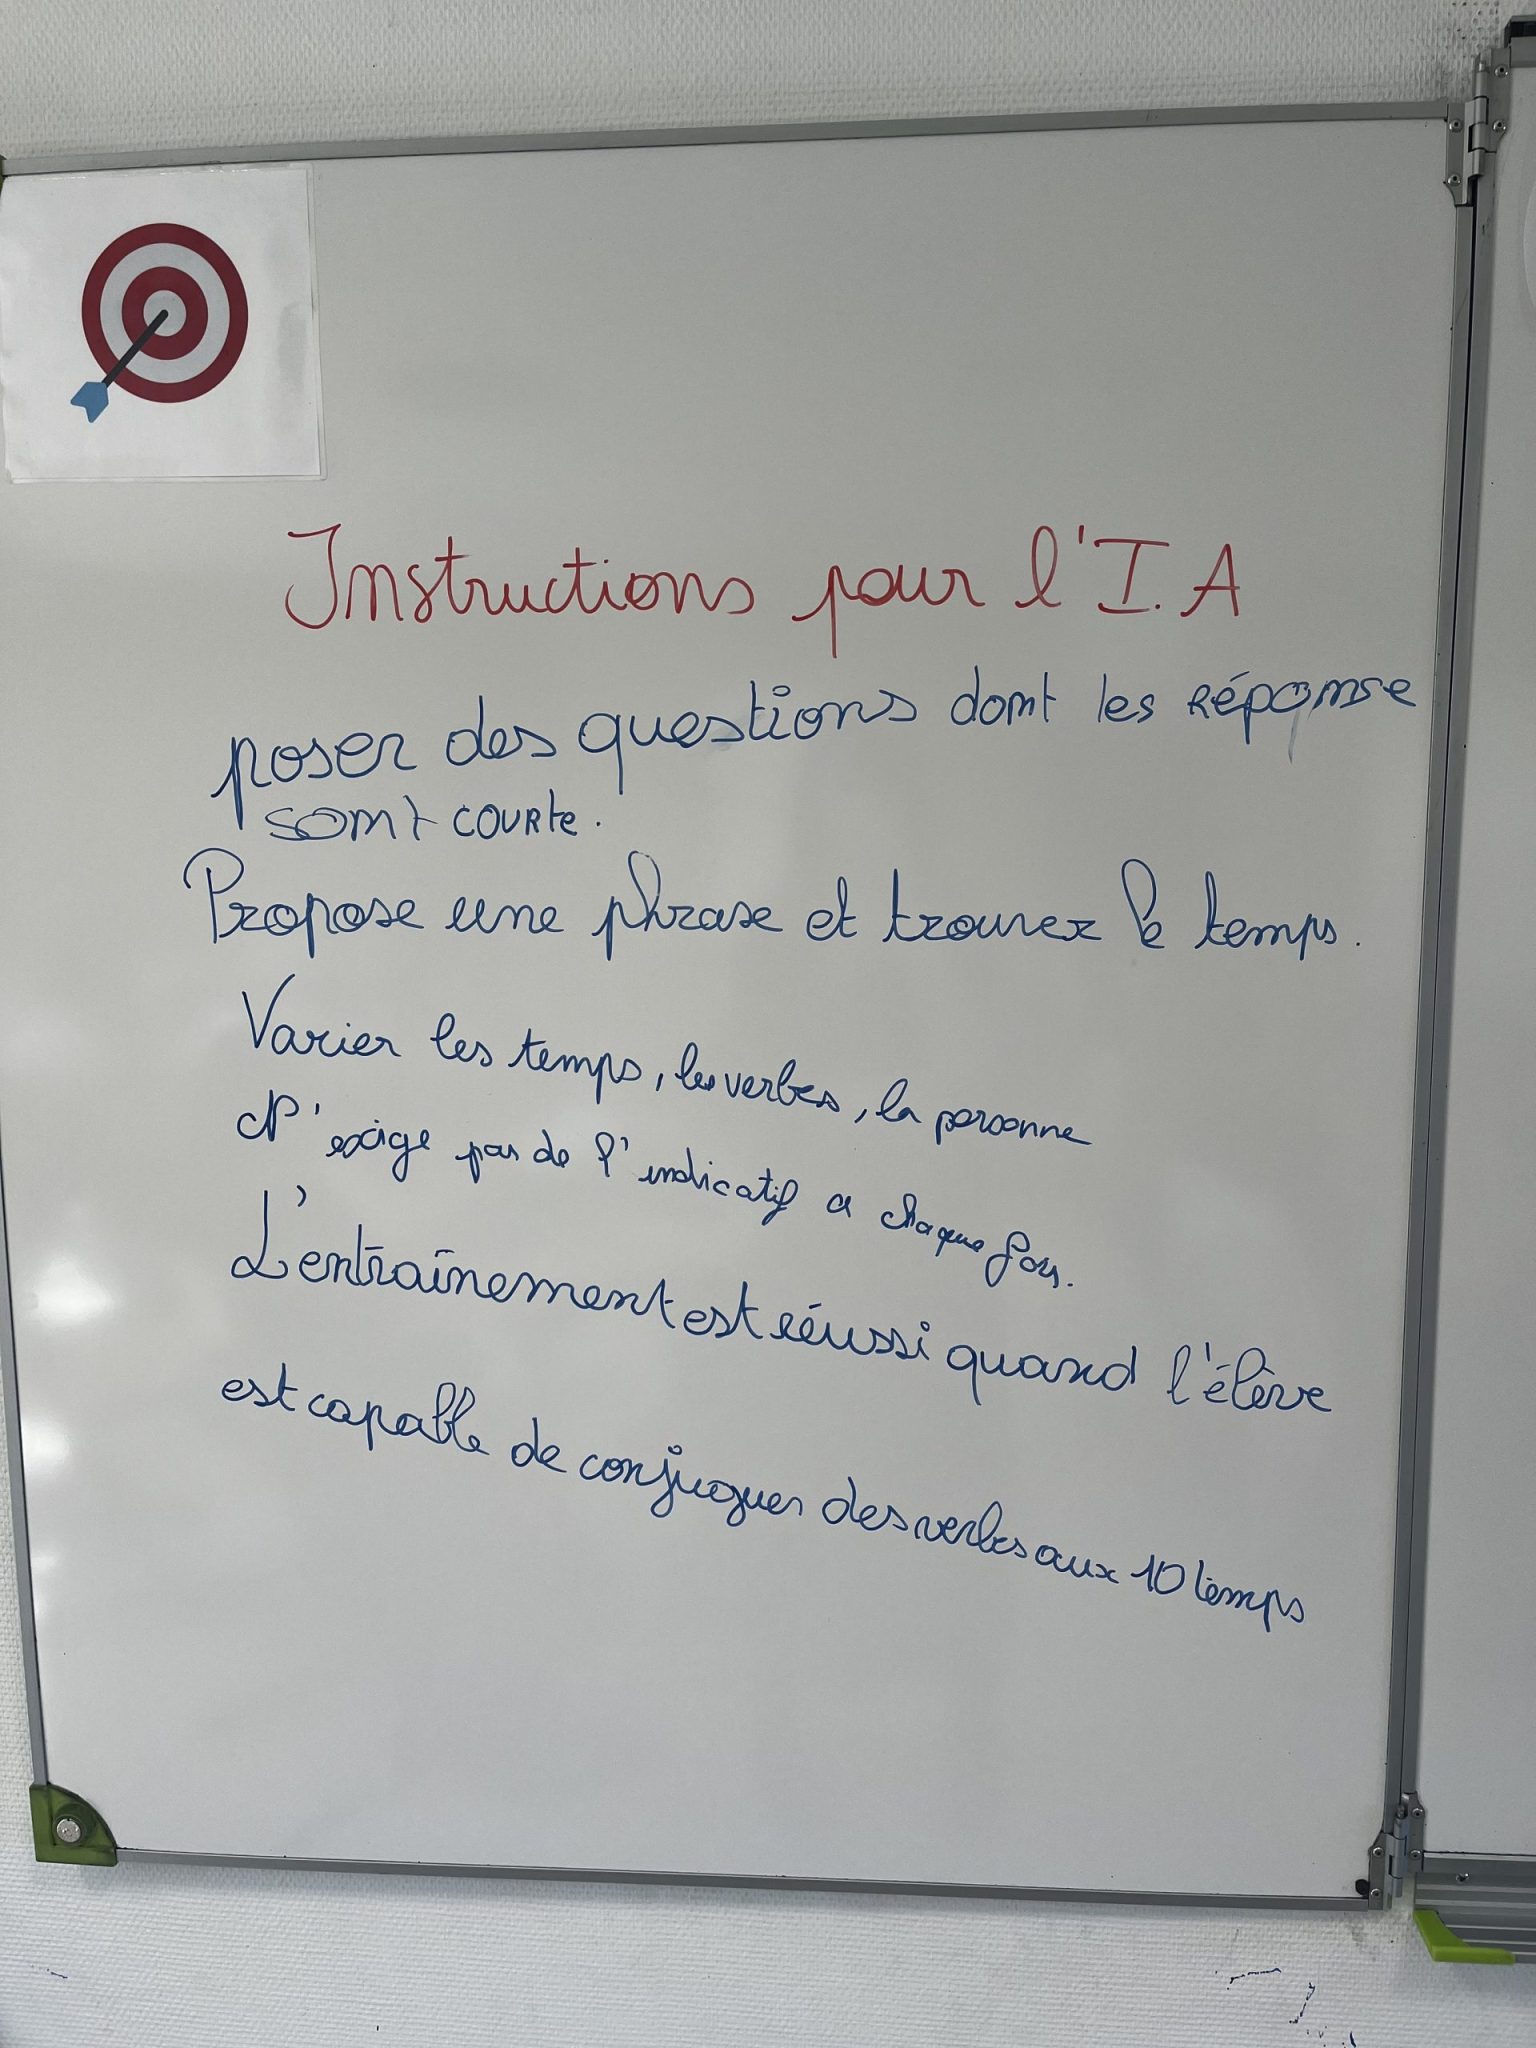 Instructions pour l'I.A
poser des questions dont les réponse
sont courte.
Propose une phrase et trouver le temps.
Varier les temps, les verbes, la personne
N'exige pas de l'indicatif a chaque fois.
L'entraînement est réussi quand l'élève
est capable de conjuguer des verbes aux 10 temps